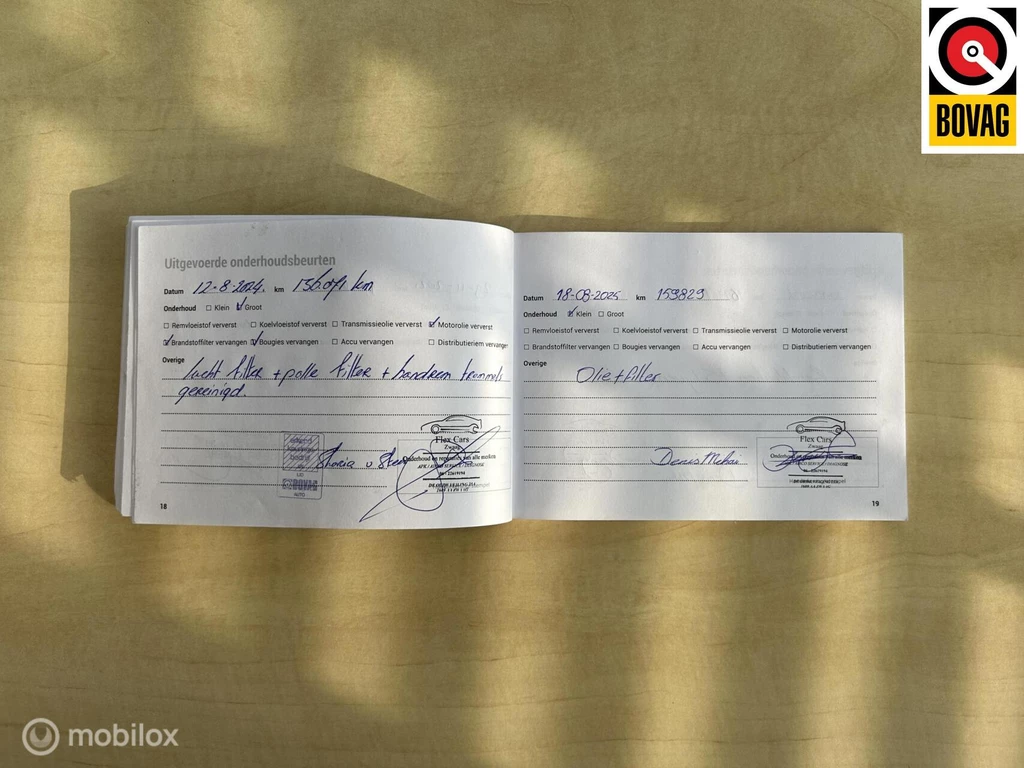 BOVAG
Uitgevoerde onderhoudsbeurten
Datum 12-8-2024. km 156071 km
Onderhoud ☐ Klein ☑ Groot
☐ Remvloeistof ververst ☐ Koelvloeistof ververst ☐ Transmissieolie ververst ☑ Motorolie ververst
☑ Brandstoffilter vervangen ☑ Bougies vervangen ☐ Accu vervangen ☐ Distributieriem vervangen
Overige lucht filter + polle filter + bandrem trommels
gereinigd.
BOVAG
AUTO
Flex Cars
Zwaag
Onderhoud en reparatie van alle merken
18
Datum 18-08-2025 km 159829
Onderhoud ☑ Klein ☐ Groot
☐ Remvloeistof ververst ☐ Koelvloeistof ververst ☐ Transmissieolie ververst ☐ Motorolie ververst
☐ Brandstoffilter vervangen ☐ Bougies vervangen ☐ Accu vervangen ☐ Distributieriem vervangen
Overige
Olie+filter
Flex Cars
Zwaag
19
mobilox